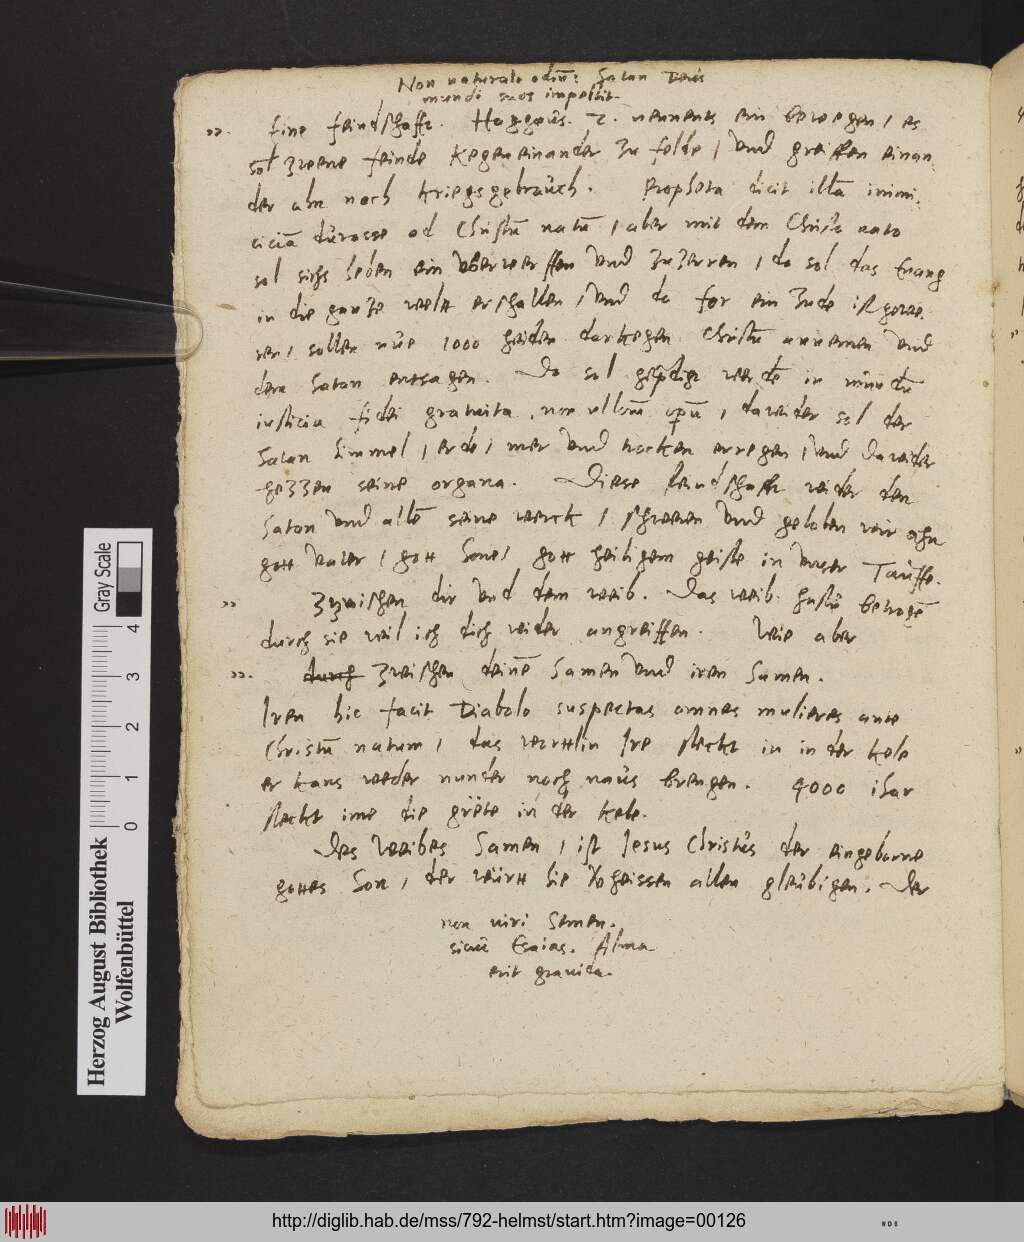 Non naturale odiū: Satan Deus
mundi suos impellit.
Eine feindschafft. Haggeus. 2. nennents ein bewegen / es
sol zweene feinde kegeneinander zu felde / vnd greiffen einan
der ahn noch kriegsgebrauch. Propheta dicit illā inimi,
ciciā durasse ad Christū natū / aber mit dem Christo nato
sol sichs heben ein vberwerffen vnd zuzerren / da sol das Euang
in die gantze welt erschallen / vnd da for ein Jude ist gewe,
sen / sollen nue 1000 heiden darkegen Christū annemen vnd
dem Satan entsagen. Da sol geprdigt werdē in mundū
iusticia fidei gratuita, non ullorū opū / dawider sol der
Satan himmel / erde / mer vnd trocken erregen / vnd dawider
hezzen seine organa. Diese feindschafft wider den
Satan vnd allē seine werck / schweren vnd geloben wir ahn
gott vater / gott Sone / gott heiligem geiste in vnser Tauffe.
Zzwischen dir vnd dem weib. Das weib hastu betrogē
durch sie wil ich dich wider angreiffen. Wie aber
durch zwischen deinē Samen vnd iren Samen.
Iren hic facit Diabolo suspectas omnes mulieres ante
Christū natum / das wörttlin Ire steckt in in der kele
er kans weder nunder noch naus brengen. 4000 ihar
steckt ime die gräte in der kele.
Des Weibes Samen / ist Jesus Christus der eingeborne
gottes Son / der württ hie vorheissen allen gleubigen. Der
non uiri Semen.
sicut Esaias. Alma
erit grauida.
Herzog August Bibliothek
Wolfenbüttel
Gray Scale
0 1 2 3 4
http://diglib.hab.de/mss/792-helmst/start.htm?image=00126